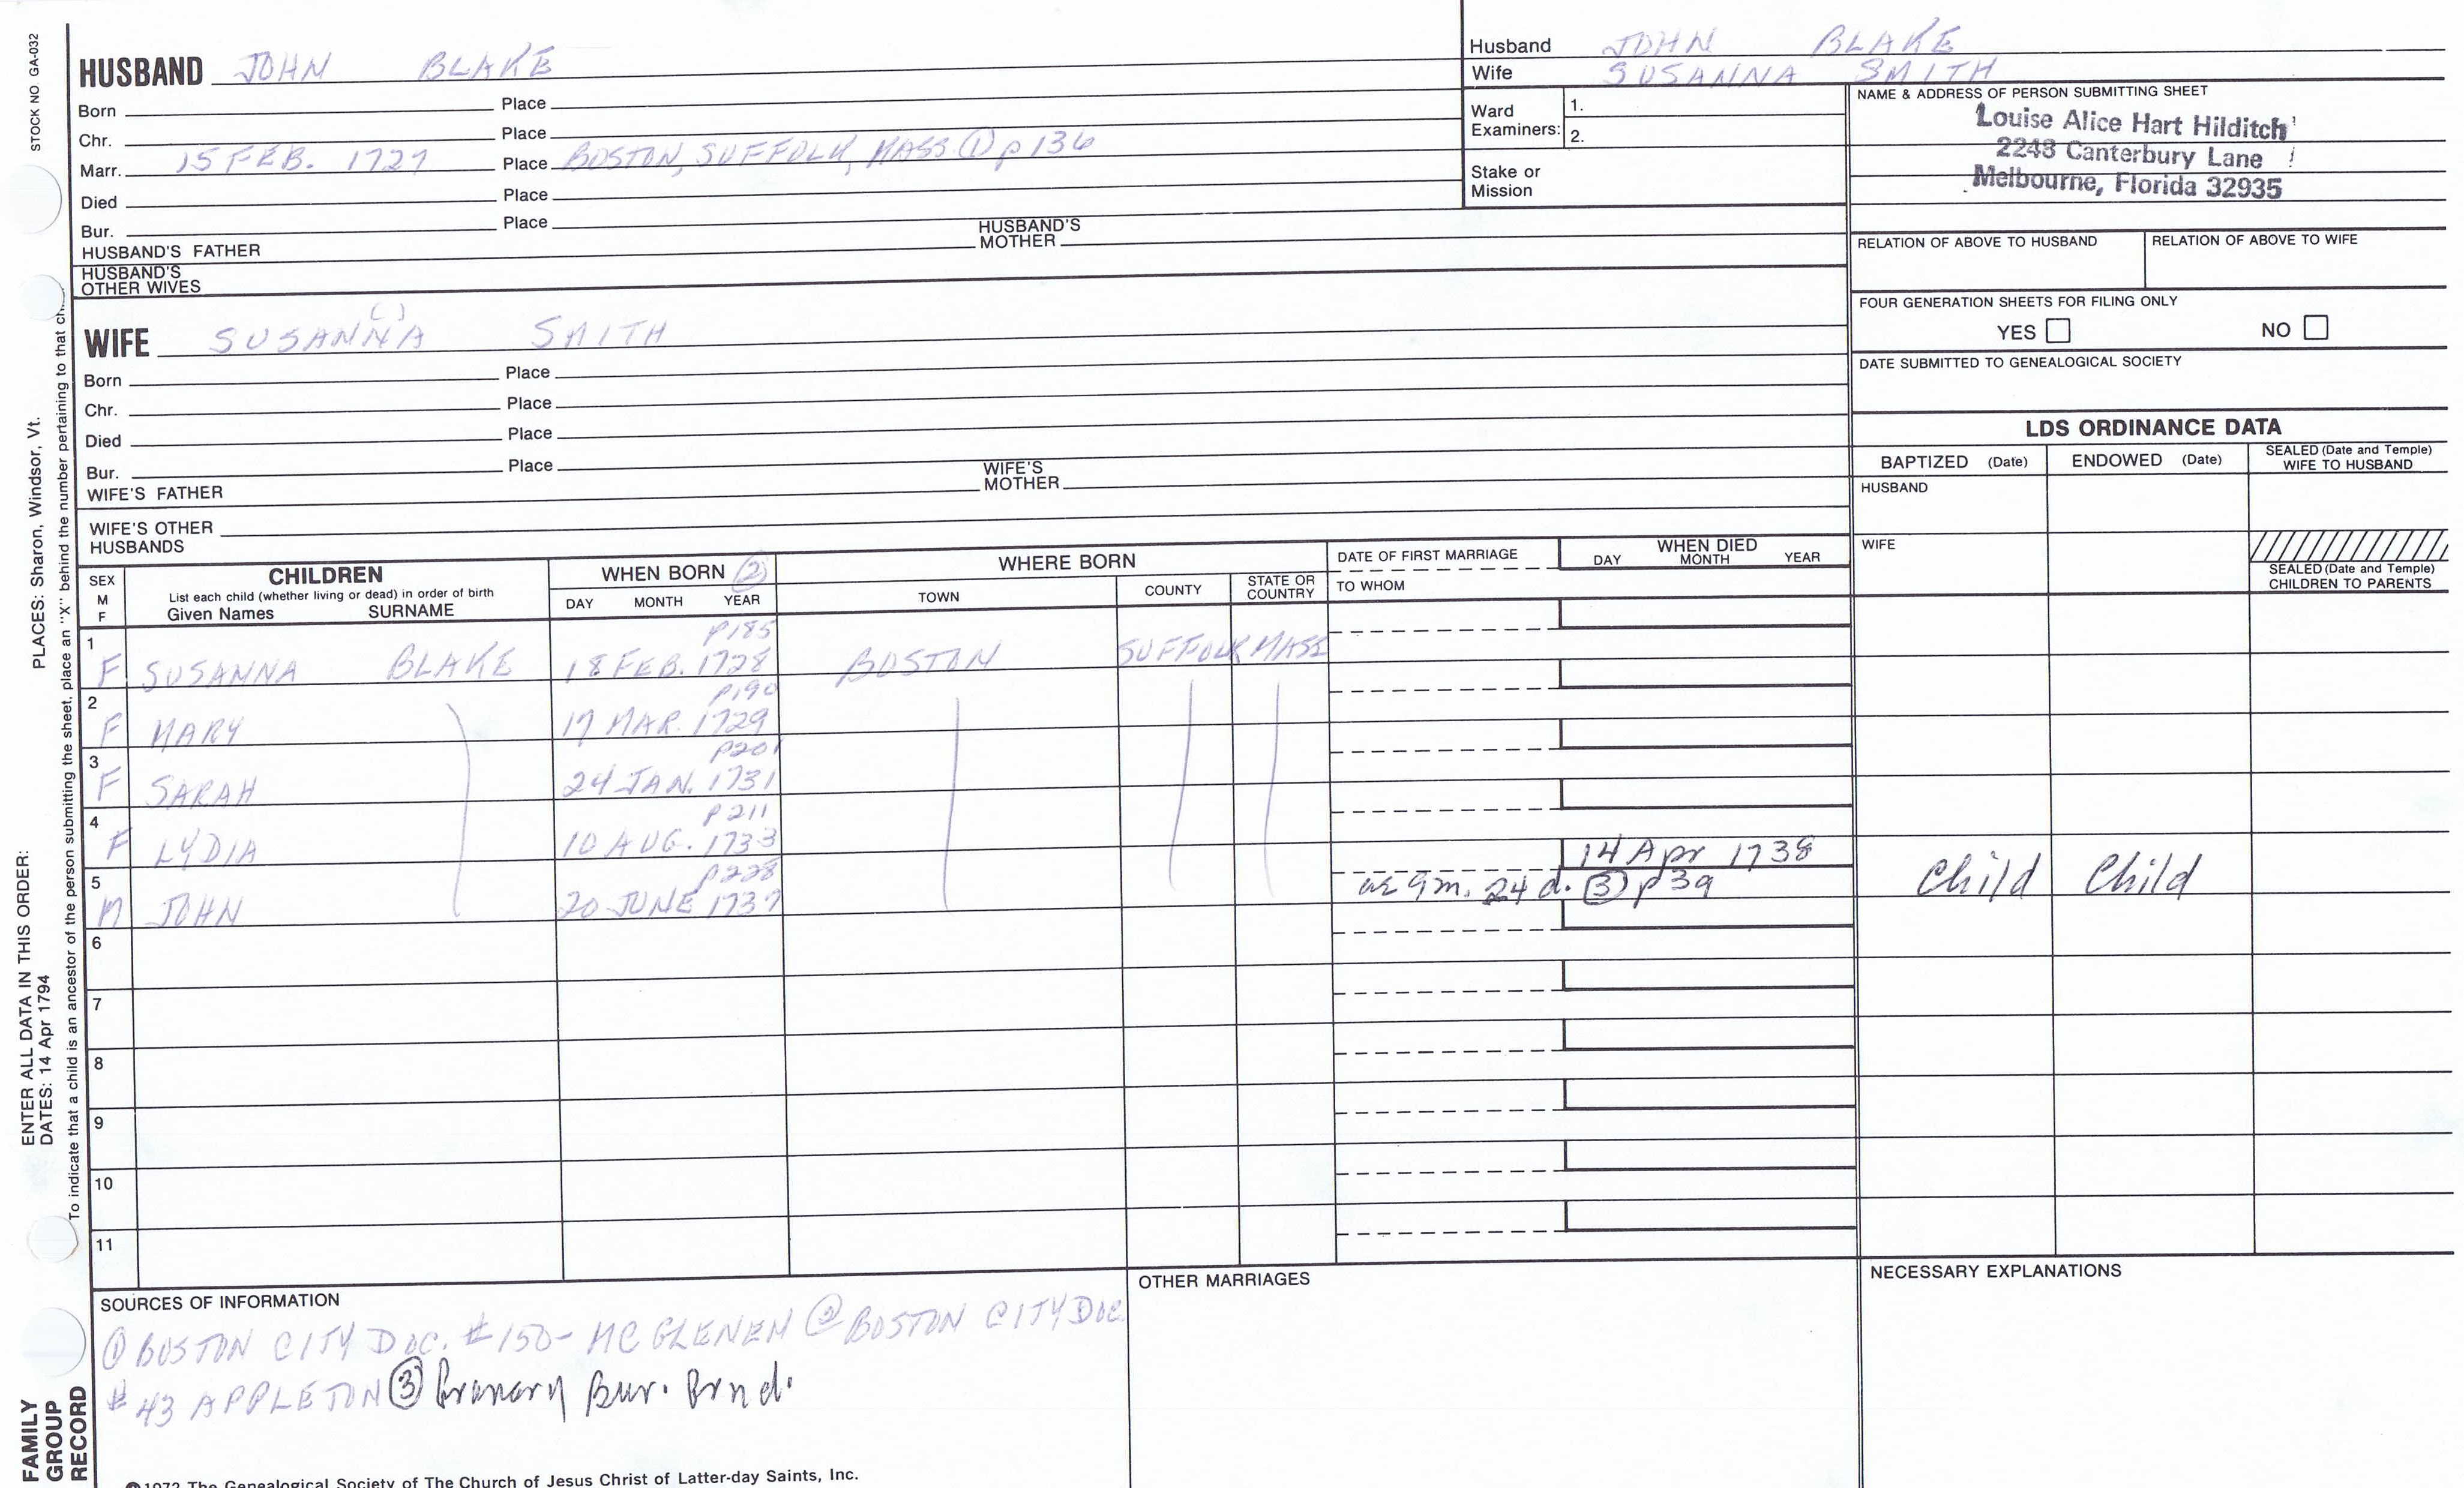 STOCK NO. GA-032
PLACES: Sharon, Windsor, Vt.
ENTER ALL DATA IN THIS ORDER:
DATES: 14 Apr 1794
To indicate that a child is an ancestor of the person submitting the sheet, place an "X" behind the number pertaining to that
FAMILY GROUP RECORD
HUSBAND JOHN BLAKE
Born Place
Chr. Place
Marr. 15 FEB. 1727 Place BOSTON, SUFFOLK, MASS (1) p 136
Died Place
Bur. Place
HUSBAND'S FATHER HUSBAND'S MOTHER
HUSBAND'S OTHER WIVES
WIFE SUSANNA SMITH
Born Place
Chr. Place
Died Place
Bur. Place
WIFE'S FATHER WIFE'S MOTHER
WIFE'S OTHER HUSBANDS
Husband JOHN BLAKE
Wife SUSANNA SMITH
Ward Examiners: 1.
2.
Stake or Mission
NAME & ADDRESS OF PERSON SUBMITTING SHEET
Louise Alice Hart Hilditch
2243 Canterbury Lane
Melbourne, Florida 32935
RELATION OF ABOVE TO HUSBAND RELATION OF ABOVE TO WIFE
FOUR GENERATION SHEETS FOR FILING ONLY
YES NO
DATE SUBMITTED TO GENEALOGICAL SOCIETY
LDS ORDINANCE DATA
BAPTIZED (Date) ENDOWED (Date) SEALED (Date and Temple) WIFE TO HUSBAND
HUSBAND
WIFE
SEALED (Date and Temple) CHILDREN TO PARENTS
SEX M F CHILDREN WHEN BORN (2) WHERE BORN DATE OF FIRST MARRIAGE WHEN DIED
List each child (whether living or dead) in order of birth
Given Names SURNAME DAY MONTH YEAR TOWN COUNTY STATE OR COUNTRY TO WHOM DAY MONTH YEAR
p185
1 F SUSANNA BLAKE 18 FEB. 1728 BOSTON SUFFOLK MASS
p190
2 F MARY 17 MAR. 1729
p201
3 F SARAH 24 JAN. 1731
p211
4 F LYDIA 10 AUG. 1733
p228 14 Apr 1738
5 M JOHN 20 JUNE 1737 ae 9m. 24 d. (3) p 39 Child Child
6
7
8
9
10
11
SOURCES OF INFORMATION
(1) BOSTON CITY DOC. #150- MCGLENEN (2) BOSTON CITY DOC.
#43 APPLETON (3) Granary Bur. Grnd.
OTHER MARRIAGES
NECESSARY EXPLANATIONS
1972 The Genealogical Society of The Church of Jesus Christ of Latter-day Saints, Inc.